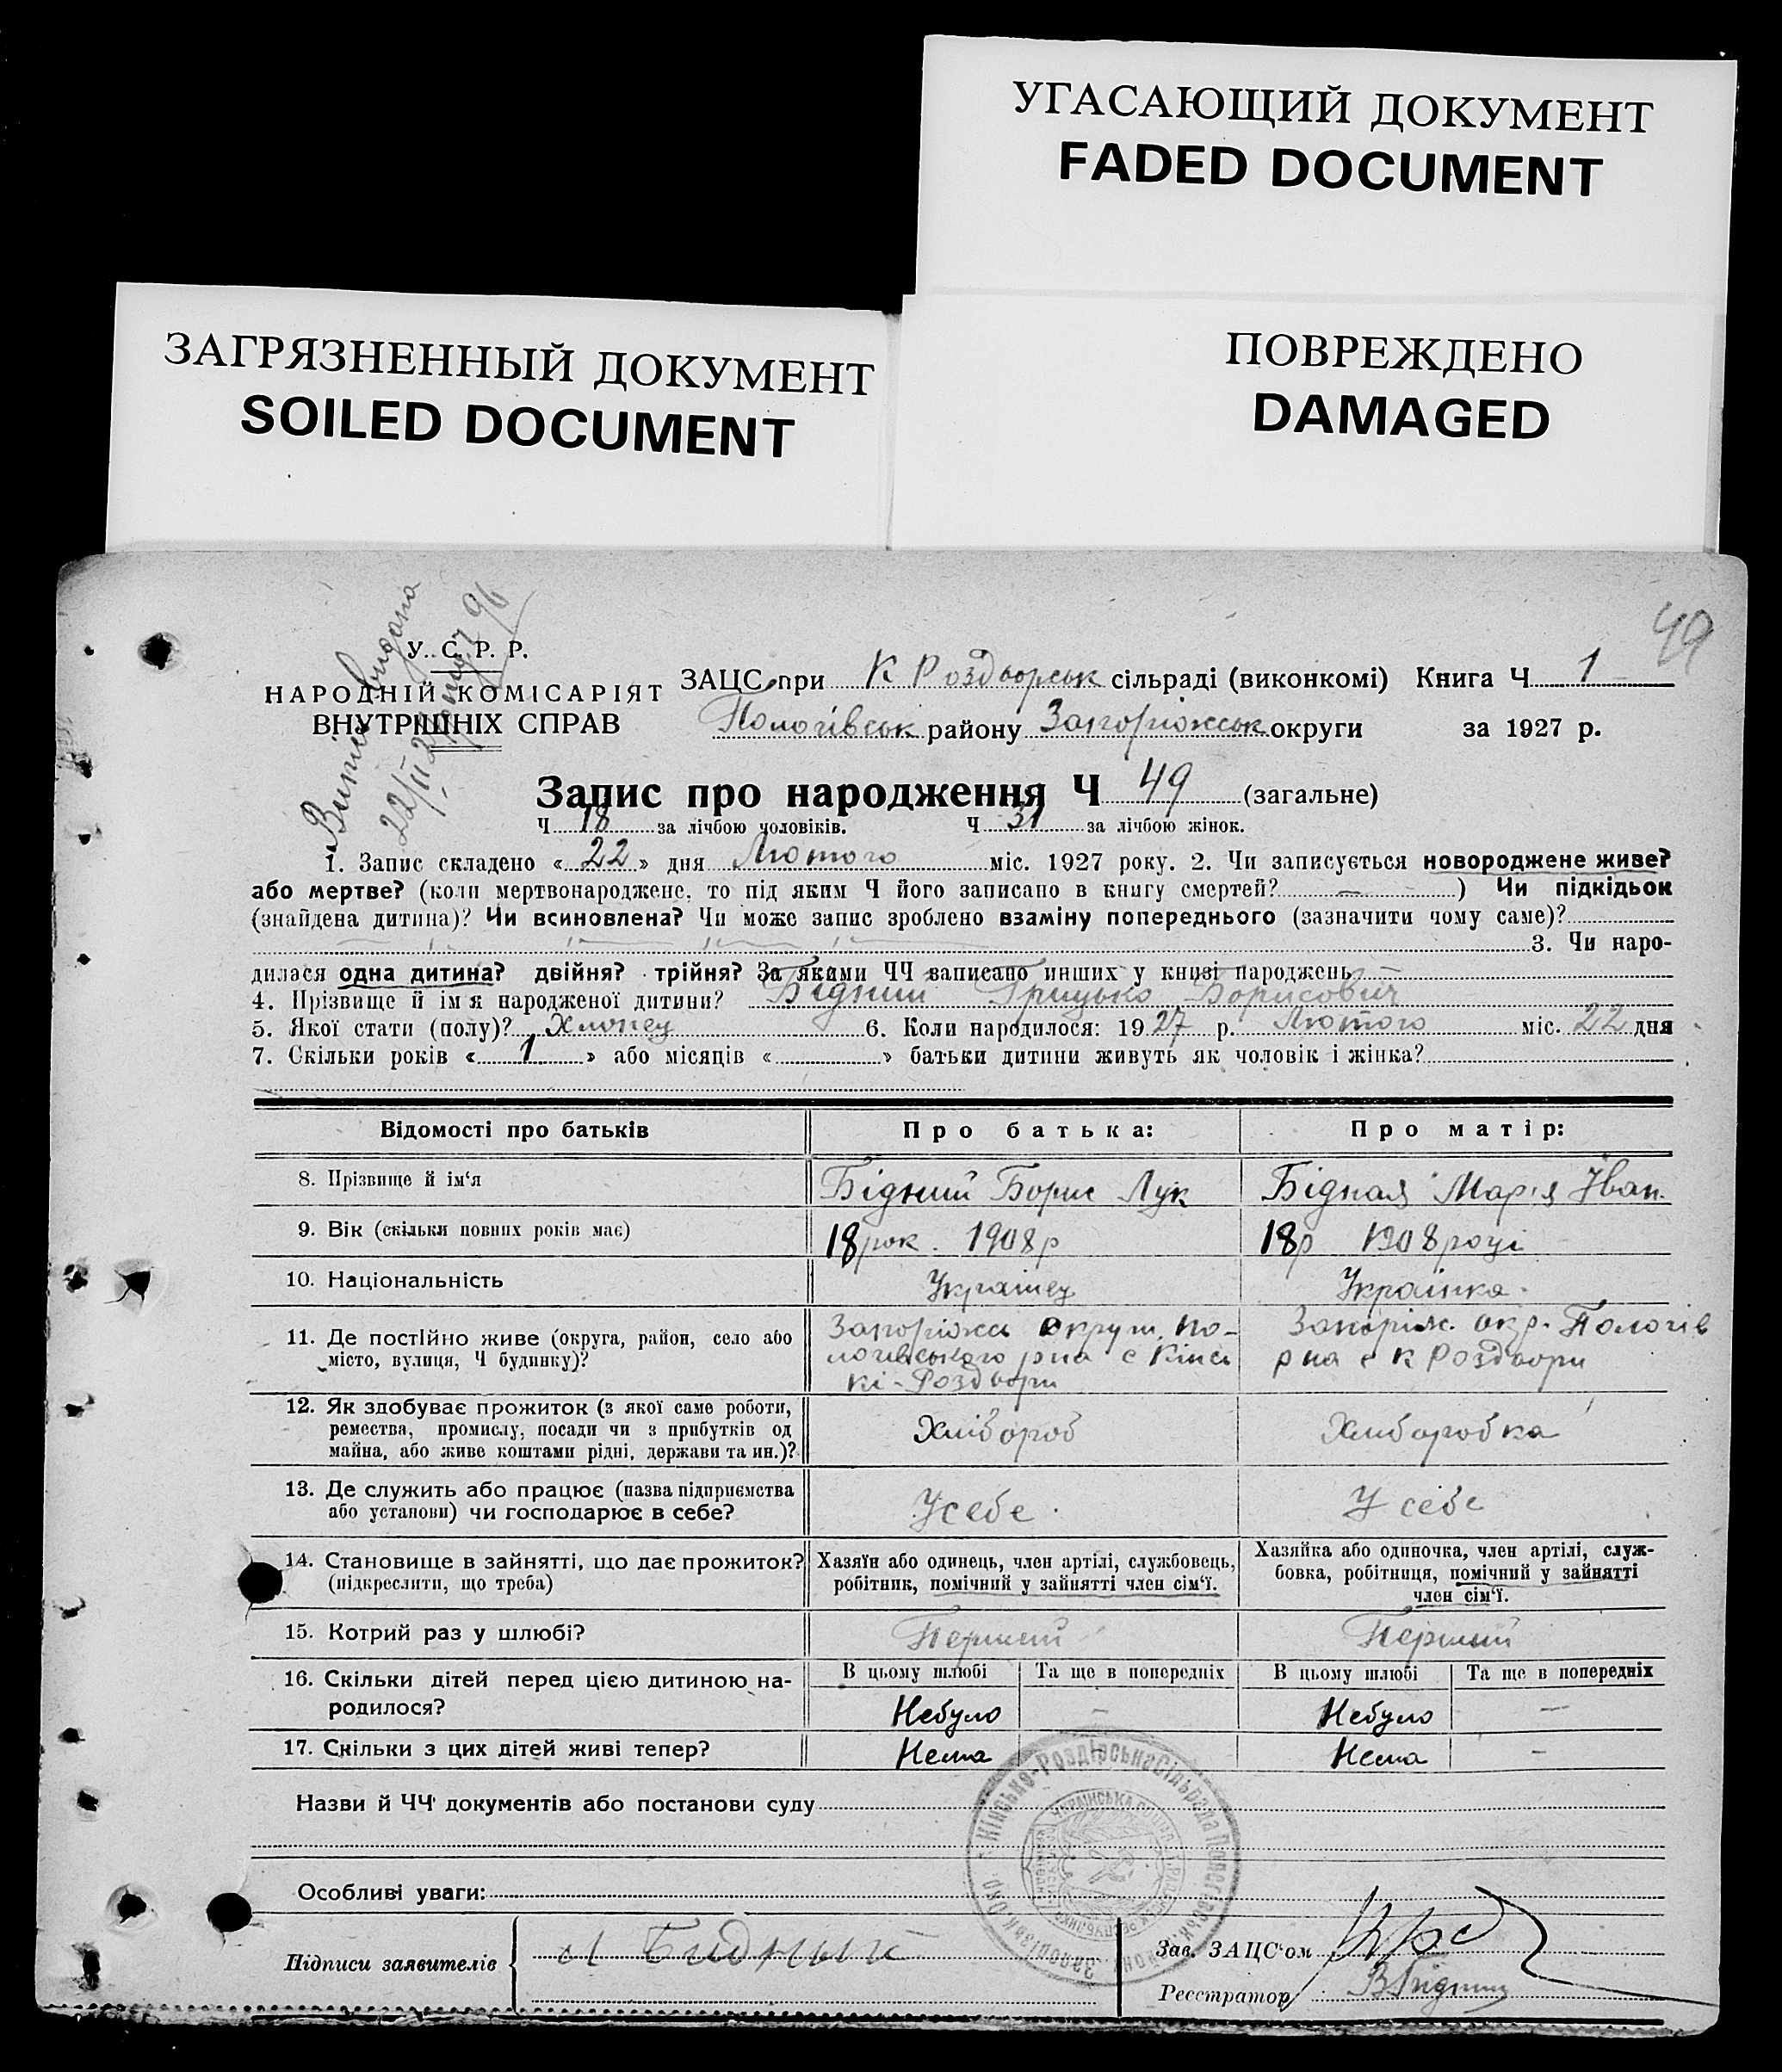 УГАСАЮЩИЙ ДОКУМЕНТ
FADED DOCUMENT
ЗАГРЯЗНЕННЫЙ ДОКУМЕНТ
SOILED DOCUMENT
ПОВРЕЖДЕНО
DAMAGED
49
Випись видана
22/II 27
У. С. Р. Р.
НАРОДНІЙ КОМІСАРІЯТ
ВНУТРІШНІХ СПРАВ
ЗАЦС при К Роздорськ сільраді (виконкомі) Книга Ч 1
Пологівськ району Запоріжськ округи за 1927 р.
Запис про народження Ч 49 (загальне)
Ч 18 за лічбою чоловіків. Ч 31 за лічбою жінок.
1. Запис складено « 22 » дня Лютого міс. 1927 року. 2. Чи записується новороджене живе?
або мертве? (коли мертвонароджене, то під яким Ч його записано в книгу смертей? — ) Чи підкідьок
(знайдена дитина)? Чи всиновлена? Чи може запис зроблено взаміну попереднього (зазначити чому саме)?
3. Чи наро-
дилася одна дитина? двійня? трійня? За якими ЧЧ записано инших у книзі народжень
4. Прізвище й ім'я народженої дитини? Бідний Грицько Борисович
5. Якої стати (полу)? Хлопец 6. Коли народилося: 1927 р. Лютого міс. 22 дня
7. Скільки років « 1 » або місяців « » батьки дитини живуть як чоловік і жінка?
Відомості про батьків Про батька: Про матір:
8. Прізвище й ім'я Бідний Борис Лук Бідная Марія Іван.
9. Вік (скільки повних років має) 18 рок. 1908 р 18 р 1908 році
10. Національність Українец Українка.
11. Де постійно живе (округа, район, село або місто, вулиця, Ч будинку)?
Запоріжси округи, По-
логівського р на с Кінсь
кі-Роздори
Запоріж. окр. Пологів
р на с К Роздори
12. Як здобуває прожиток (з якої саме роботи,
ремества, промислу, посади чи з прибутків од
майна, або живе коштами рідні, держави та ин.)?
Хлібороб Хліборобка
13. Де служить або працює (назва підприємства
або установи) чи господарює в себе?
У себе. У себе
14. Становище в зайнятті, що дає прожиток?
(підкреслити, що треба)
Хазяїн або одинець, член артілі, службовець,
робітник, помічний у зайнятті член сім'ї.
Хазяйка або одиночка, член артілі, служ-
бовка, робітниця, помічний у зайнятті
член сім'ї.
15. Котрий раз у шлюбі? Перший Перший
16. Скільки дітей перед цією дитиною на-
родилося?
В цьому шлюбі Та ще в попередніх В цьому шлюбі Та ще в попередніх
Небуло — Небуло —
17. Скільки з цих дітей живі тепер? Нема Нема —
Назви й ЧЧ документів або постанови суду
Кінсько-Роздірська Сільрада
Особливі уваги:
Підписи заявителів Бидный
Зав. ЗАЦС'ом
Реєстратор В Бідний